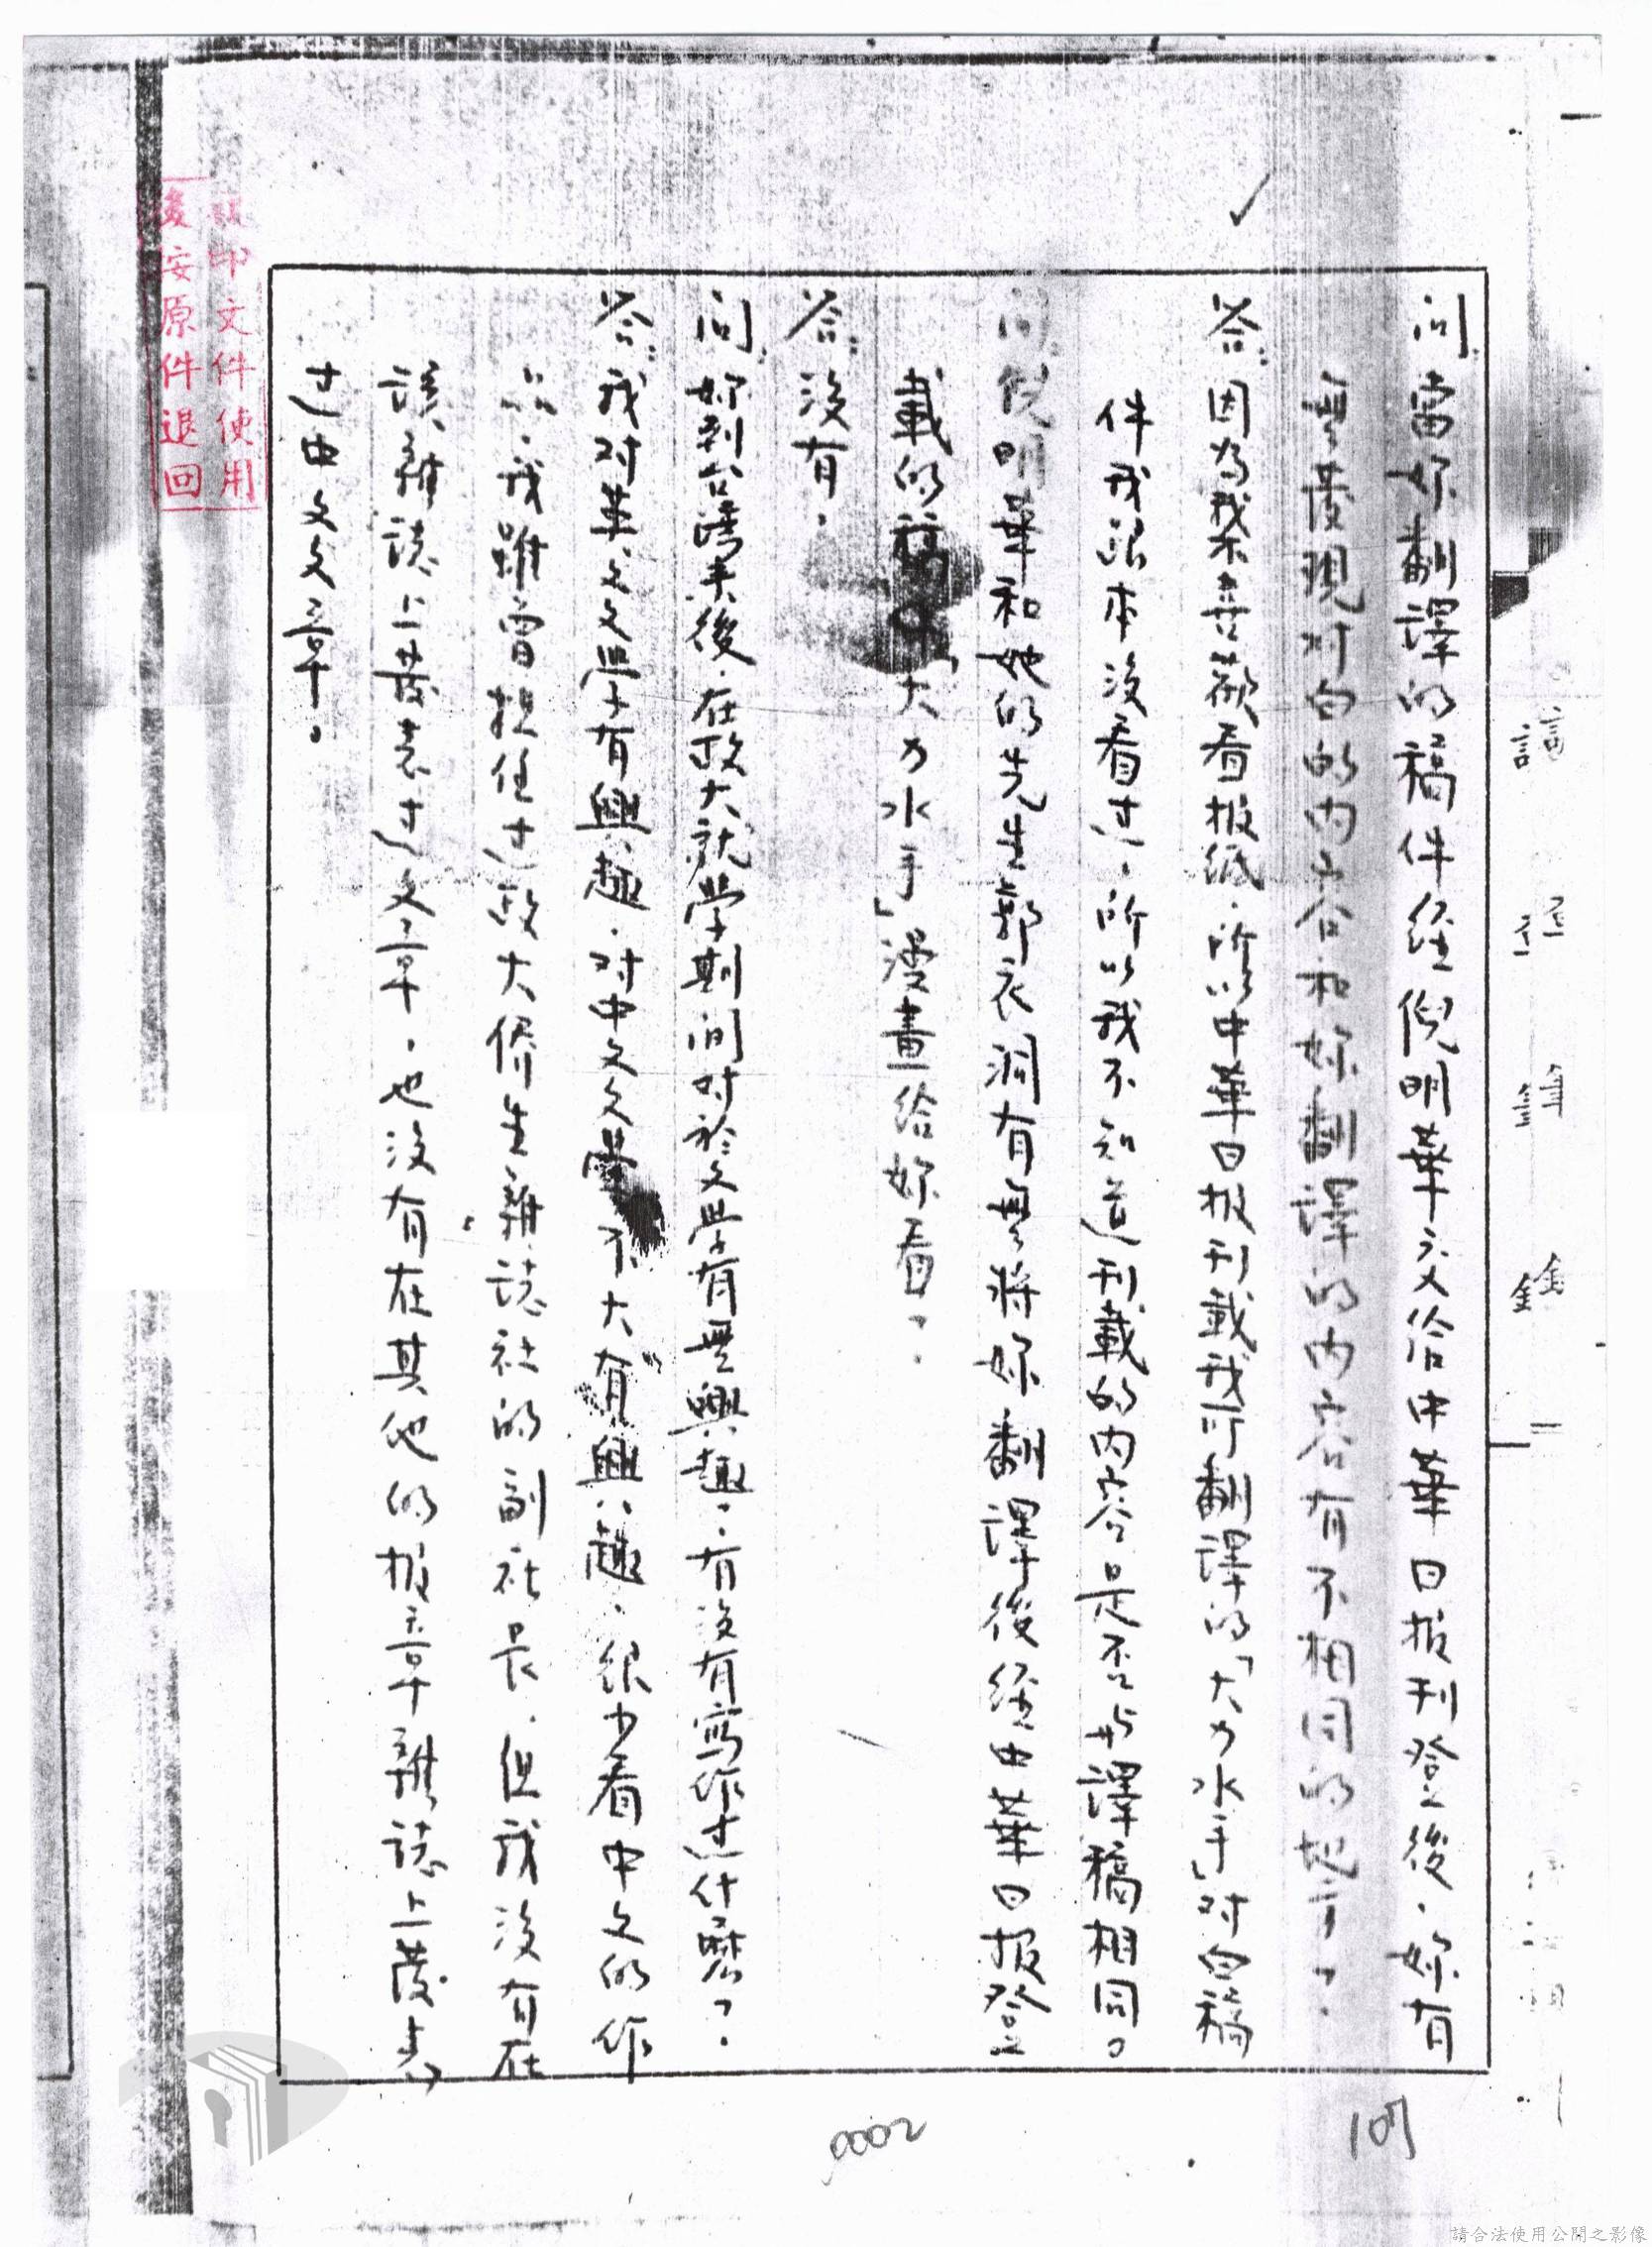 問：當妳翻譯的稿件經倪明華交給中華日報刊登後，妳有
曾發現对白的內容和妳翻譯的內容有不相同的地方？
答：因為我不喜歡看报紙，所以中華日报刊載我所翻譯的「大力水手」对白稿
件我根本沒看过，所以我不知道刊載的內容是否与譯稿相同。
問：倪明華和她的先生郭衣洞有曾將妳翻譯後經中華日报登
載的稿中「大力水手」漫畫給妳看？
答：沒有。
問：妳到台灣來後，在政大就學期间对於文學有無興趣？有沒有寫作过什麼？
答：我对英文文學有興趣，对中文文學不大有興趣，很少看中文的作
品，我雖曾担任过政大僑生雜誌社的副社長，但我沒有在
該雜誌上發表过文章，也沒有在其他的报章雜誌上發表
过中文文章。
印文件使用
後按原件退回
107
0002
請合法使用公開之影像